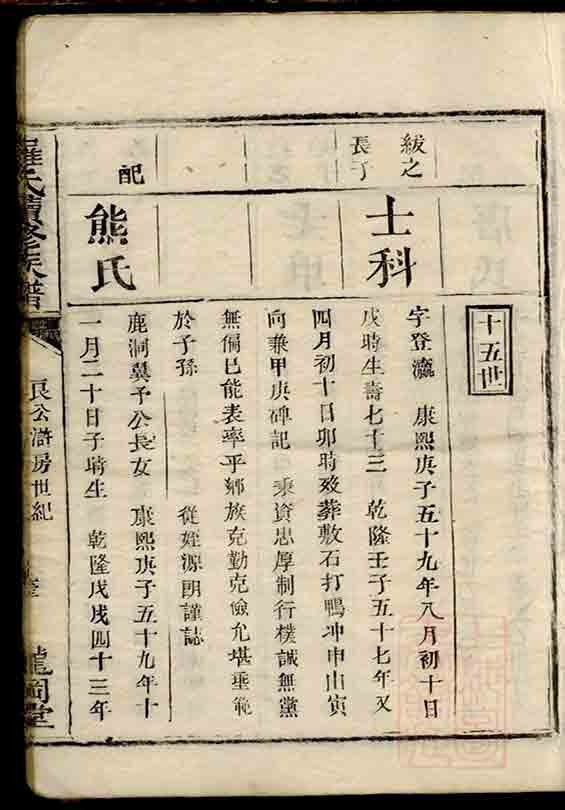 十五世
紱之
長丁
士科
字登瀛 康熙庚子五十九年八月初十日
戌時生壽七十三 乾隆壬子五十七年又
四月初十日卯時歿葬敷石打鴨冲申山寅
向兼甲庚碑記 秉資忠厚制行樸誠無黨
無偏已能表率乎鄉族克勤克儉允堪垂範
於子孫 從姪源朗謹誌
配
熊氏
鹿洞冀予公長女 康熙庚子五十九年十
一月二十日子時生 乾隆戊戌四十三年
羅氏續修族譜
艮公滸房世紀
龍岡堂